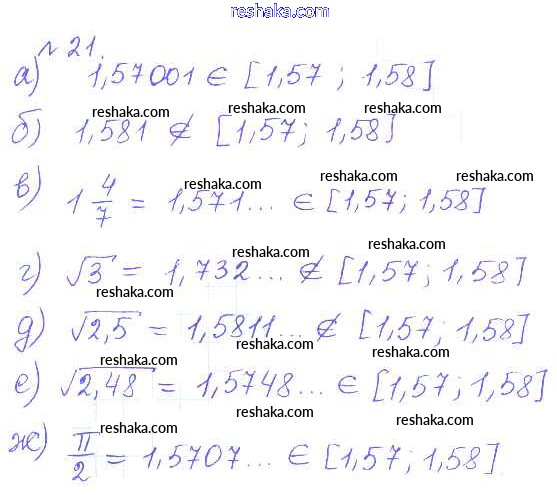 reshaka.com
№ 21.
а) 1,57001 ∈ [1,57 ; 1,58]
reshaka.com reshaka.com reshaka.com
б) 1,581 ∉ [1,57; 1,58]
reshaka.com reshaka.com reshaka.com
в) 1 4/7 = 1,571... ∈ [1,57; 1,58]
reshaka.com reshaka.com
г) √3 = 1,732... ∉ [1,57; 1,58]
reshaka.com reshaka.com
д) √2,5 = 1,5811... ∉ [1,57; 1,58]
reshaka.com reshaka.com
е) √2,48 = 1,5748... ∈ [1,57; 1,58]
reshaka.com reshaka.com
ж) π/2 = 1,5707... ∈ [1,57; 1,58]
reshaka.com reshaka.com